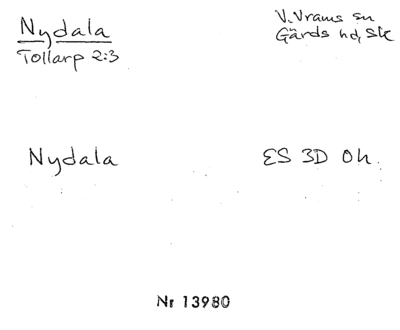 Nydala
Tollarp 2:3
V. Vrams sn
Gärds hd, Sk
Nydala
ES 3D 0h.
Nr 13980